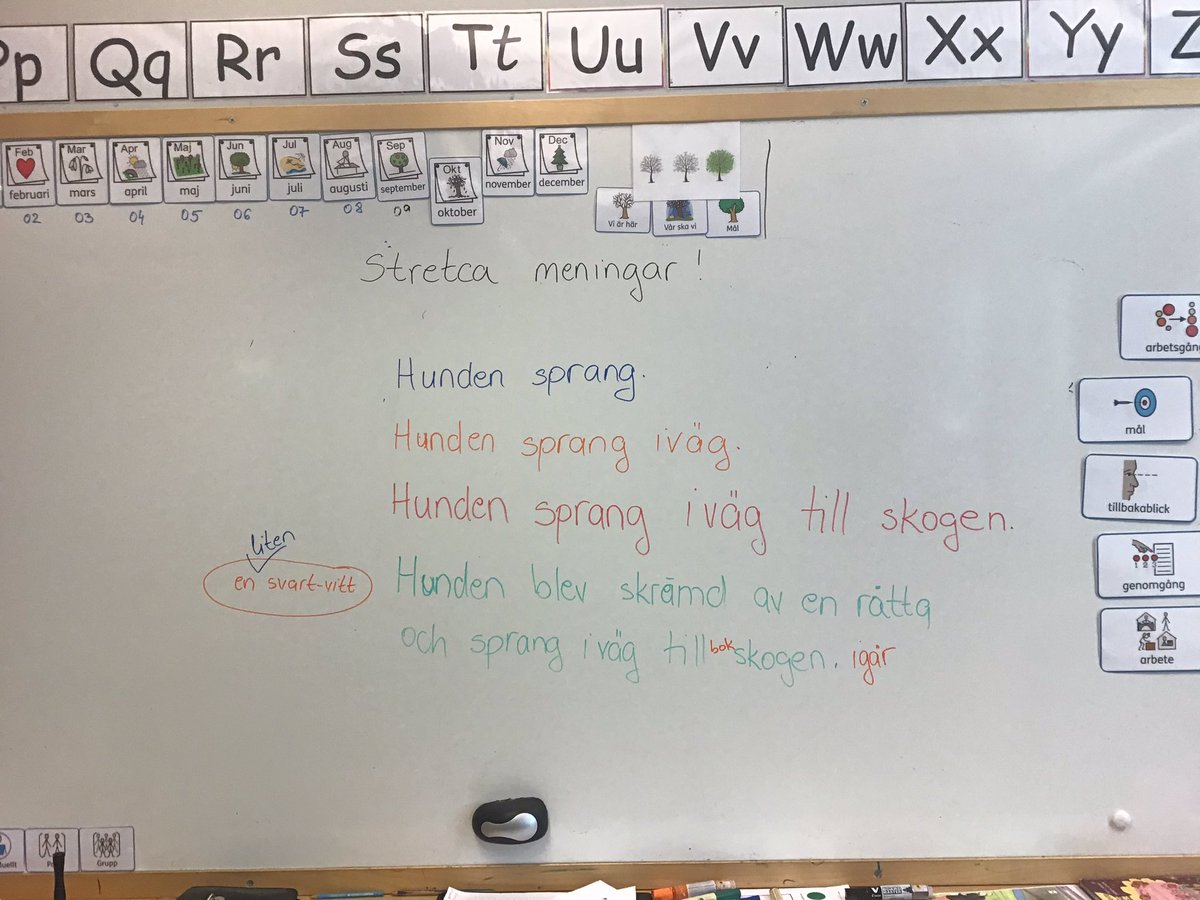 Qq Rr Ss Tt Uu Vv Ww Xx Yy Z
Feb Mar Apr Maj Jun Jul Aug Sep Okt Nov Dec
februari mars april maj juni juli augusti september oktober november december
02 03 04 05 06 07 08 09
Vi är här Vår ska vi Mål
Stretca meningar!
Hunden sprang.
Hunden sprang iväg.
Hunden sprang iväg till skogen.
liten
en svart-vitt Hunden blev skrämd av en råtta
och sprang iväg till bok skogen. igår
arbetsgån
mål
tillbakablick
genomgång
arbete
Grupp